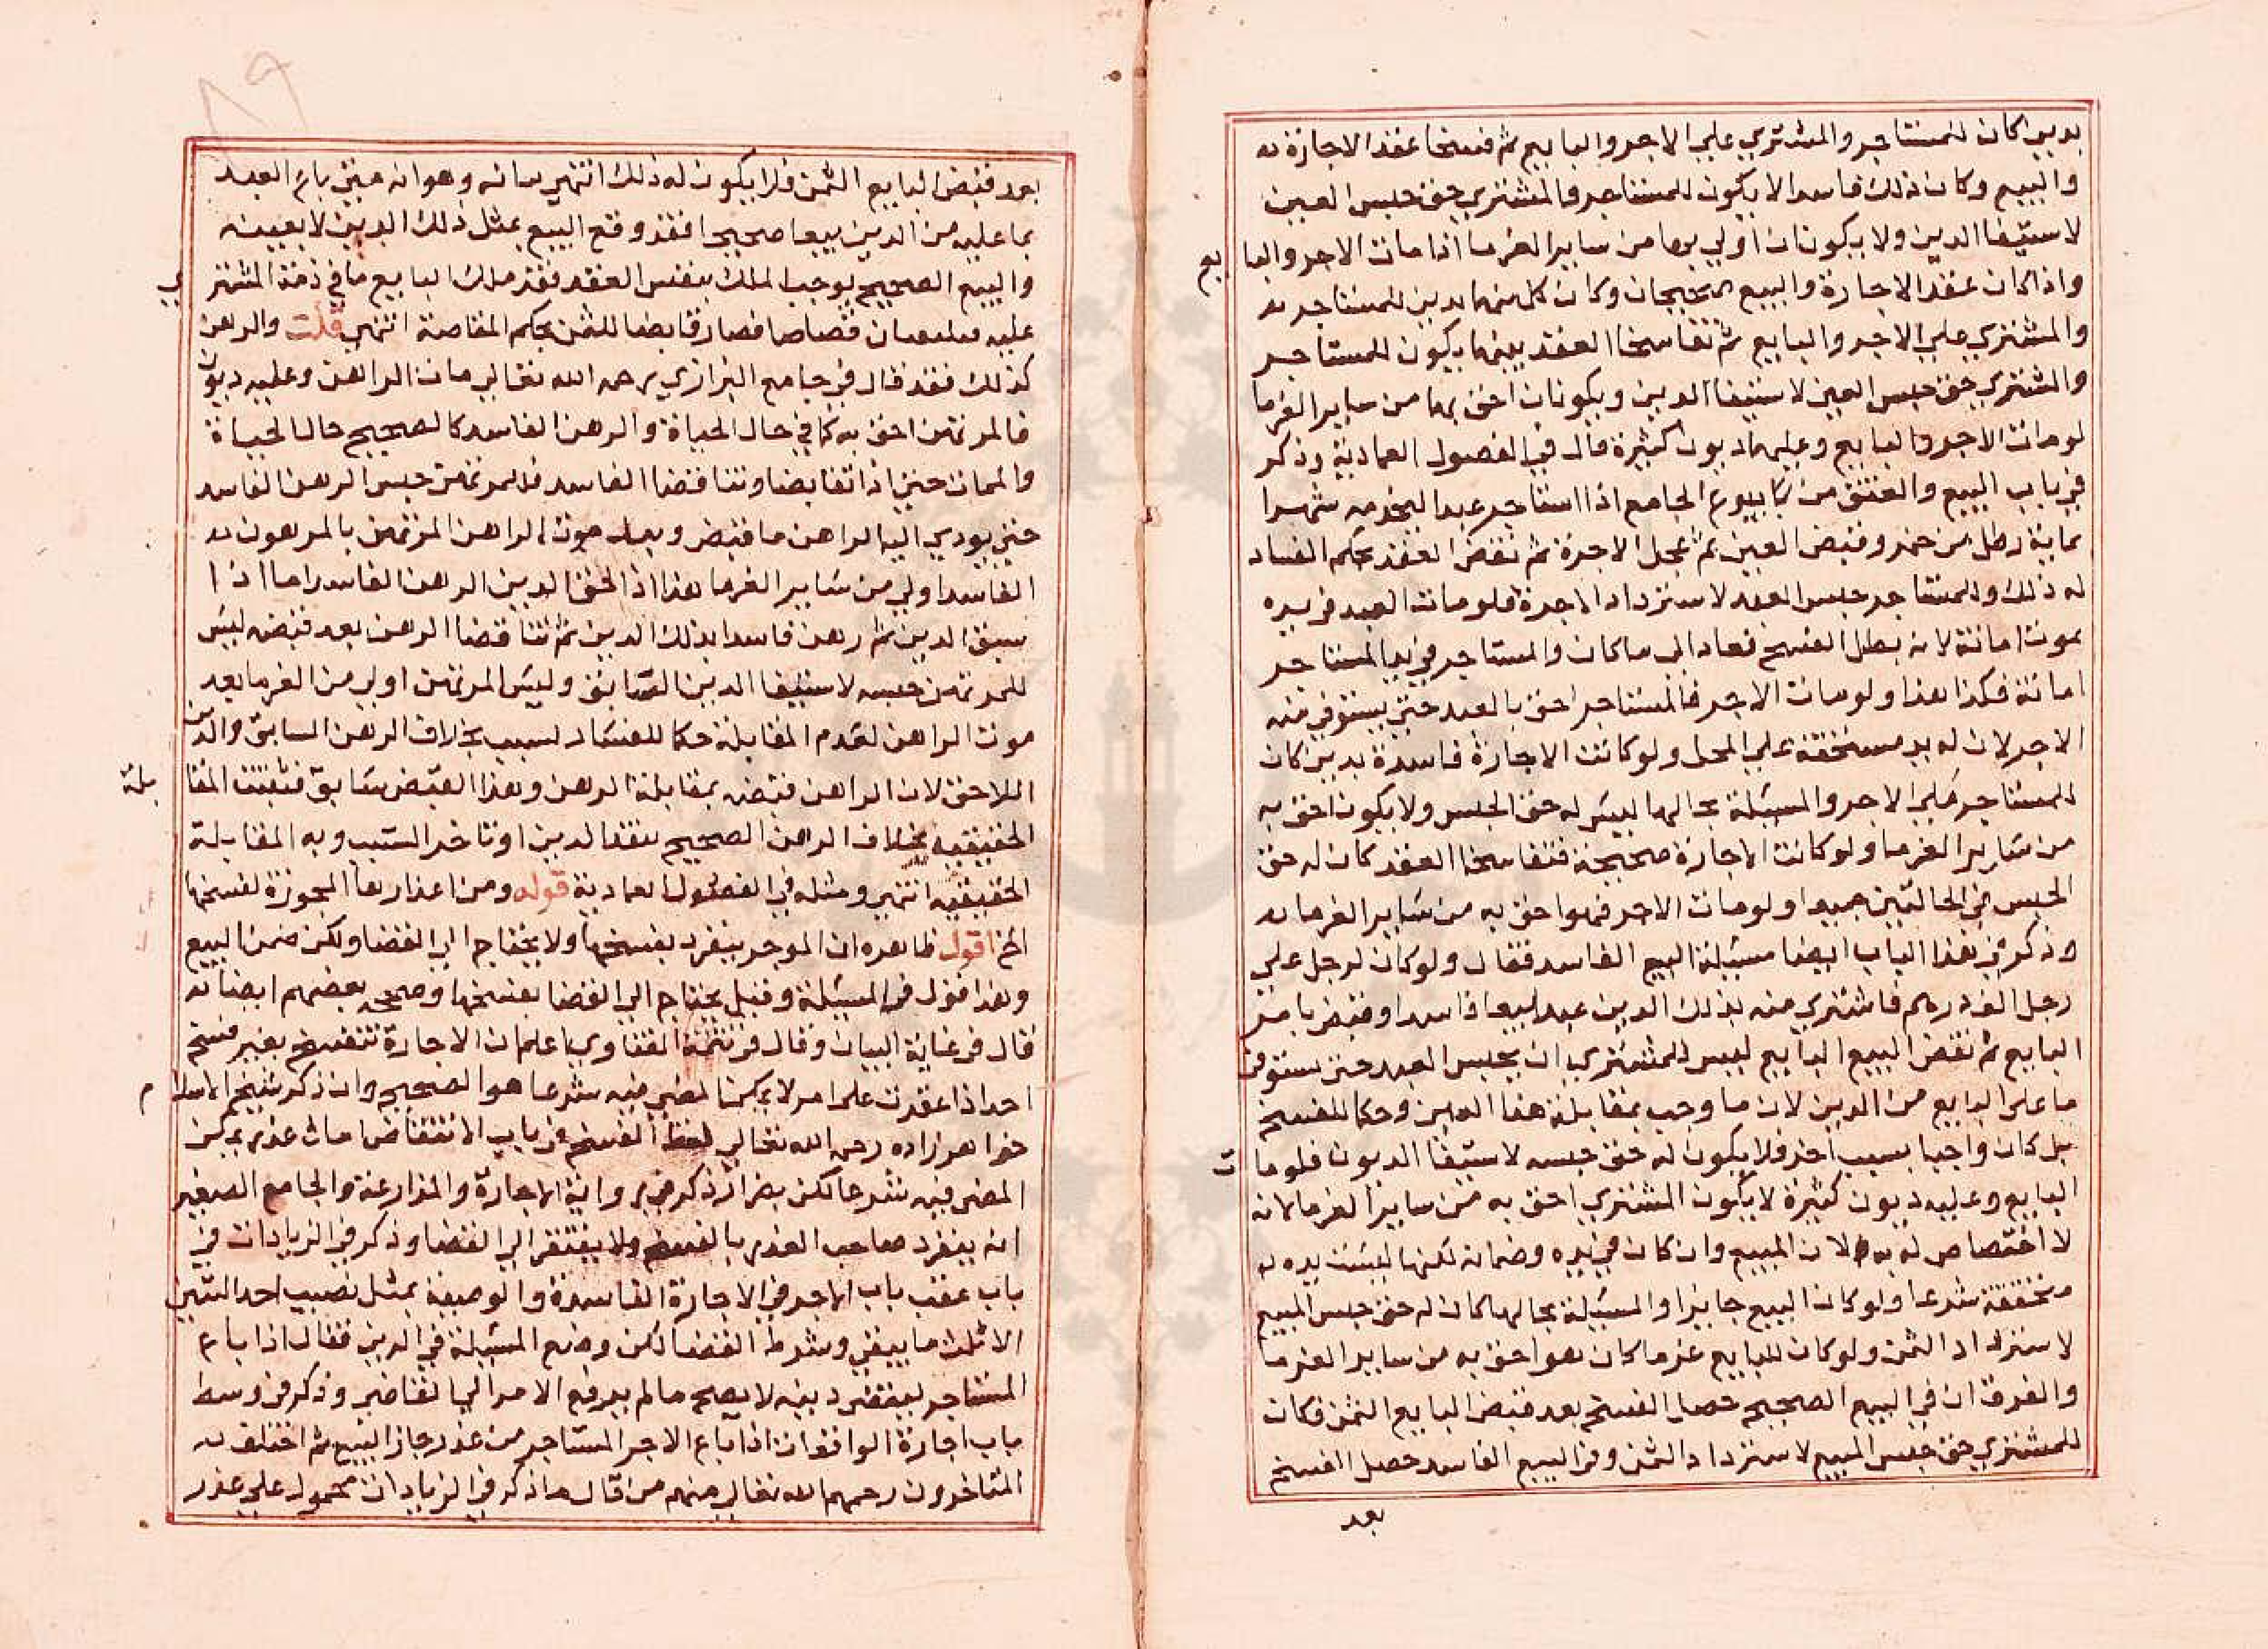 بدين كان للمستاجر والمشتري علي الاجر والبايع ثم فسخا عقد الاجارة
والبيع وكان ذلك فاسدا لا يكون للمستاجر والمشتري حق حبس العين
لاستيفا الدين ولا يكونان اولي بها من ساير الغرما اذا مات الاجر والبا يع
واذا كان عقد الاجارة والبيع صحيحان وكان كل منهما بدين للمستاجر
والمشتري علي الاجر والبايع ثم تفاسخا العقد بينهما يكون للمستاجر
والمشتري حق حبس العين لاستيفا الدين ويكونان احق بها من ساير الغرما
لو مات الاجر والبايع وعليهما ديون كثيرة قال في الفصول العمادية وذكر
في باب البيع والعتق من بيوع الجامع اذا استاجر عبدا ليخدمه شهرا
بماية رطل من خمر وقبض العين ثم عجل الاجرة ثم نقض العقد بحكم الفساد
له ذلك وللمستاجر حبس العبد لاسترداد الاجرة فلو مات العبد في يده
يموت امانة لانه بطل الفسخ فعاد الي ما كان والمستاجر في يد المستاجر
امانة فكذا هذا ولو مات الاجر فالمستاجر احق بالعبد حتي يستوفي منه
الاجر لان له يد مستحقة علي المحل ولو كانت الاجارة فاسدة بدين كان
للمستاجر علي الاجر والمسئلة بحالها ليس له حق الحبس ولا يكون احق به
من ساير الغرما ولو كانت الاجارة صحيحة فتفاسخا العقد كان له حق
الحبس في الحالتين جميعا ولو مات الاجر فهو احق به من ساير الغرما
وذكر في هذا الباب ايضا مسئلة البيع الفاسد فقال ولو كان لرجل علي
رجل الف درهم فاشتري منه بذلك الدين عبدا بيعا فاسدا وقبض بامر
البايع ثم نقض البيع البايع ليس للمشتري ان يحبس العبد حتي يستوفي
ما علي البايع من الدين لان ما وجب بمقابلة هذا الدين وحكما للفسخ
بل كان واجبا بسبب اخر فلا يكون له حق حبسه لاستيفا الديون فلو ما ت
البايع وعليه ديون كثيرة لا يكون المشتري احق به من ساير الغرما لانه
لا اختصاص له به لان المبيع وان كان في يده وضمانه لكنها ليست يده
مستحقة شرعا ولو كان البيع جايزا والمسئلة بحالها كان له حق حبس المبيع
لاسترداد الثمن ولو كان للبايع غرما كان هو احق به من ساير الغرما
والفرق ان في البيع الصحيح حصل الفسخ بعد قبض البايع الثمن فكان
للمشتري حق حبس المبيع لاسترداد الثمن وفي البيع الفاسد حصل الفسخ
بعد
بعد قبض البايع الثمن فلا يكون له ذلك انتهي بيانه وهو انه متي باع العبد
بما عليه من الدين بيعا صحيحا فقد وقع البيع بمثل ذلك الدين لا بعينه
والبيع الصحيح يوجب الملك بنفس العقد فقد ملك البايع ما في ذمة المشتر ي
عليه فيلتقيان قصاصا فصار قابضا للثمن بحكم المقاصة انتهي قلت والرهن
كذلك فقد قال في جامع البزازي رحمه الله تعالي مات الراهن وعليه ديون
فالمرتهن احق به كما في حال الحياة والرهن الفاسد كالصحيح حال الحياة
والممات حتي اذا تقابضا وتناقضا الفاسد فللمرتهن حبس الرهن الفاسد
حتي يودي اليه الراهن ما قبض وبعد موت الراهن المرتهن بالمرهون
الفاسد اولي من ساير الغرما هذا اذا لحق الدين الرهن الفاسد اما اذا
سبق الدين ثم رهن فاسدا بذلك الدين ثم تناقضا الرهن بعد قبضه ليس
للمرتهن حبسه لاستيفا الدين السابق وليس المرتهن اولي من الغرما بعد
موت الراهن لعدم المقابلة حكما للفساد لسبب بخلاف الرهن السابق والدين
اللاحق لان الراهن قبضه بمقابلة الرهن وهذا القبض سابق فثبتت المقا بلة
الحقيقيه بخلاف الرهن الصحيح تقدم الدين او تاخر السبب وبه المقابلة
الحقيقيه انتهي ومثله في الفصول العمادية قوله ومن اعذارها المجوزة لفسخها
الخ اقول ظاهره ان الموجر ينفرد بفسخها ولا يحتاج الي القضا ولكن ضمن البيع
وهذا قول في المسئلة وقيل يحتاج الي القضا بفسخها وصححه بعضهم ايضا
قال في غاية البيان وقال في تتمة الفتاوي اعلم ان الاجارة تنفسخ بغير فسخ
احد اذا عقدت علي امر لا يمكن المضي فيه شرعا هو الصحيح وان ذكر شيخ الاسلا م
خواهر زاده رحمه الله تعالي لفظ الفسخ في باب الانتقاض اما ث عذر يمكن
المضي فيه شرعا لكن بضرر ذكر في رواية الاجارة والمزارعة والجامع الصغير
انه ينفرد صاحب العذر بالفسخ ولا يفتقر الي القضا وذكر في الزيادات في
باب عقب باب الاجر في الاجارة الفاسدة والوصية بمثل نصيب احد البنين
الا ثلث ما يبقي وشرط القضا لكن وضع المسئلة في الدين فقال اذا باع
المستاجر ليقضي دينه لا يصح ما لم يرفع الامر الي القاضي وذكر في وسط
باب اجارة الواقعات اذا باع الاجر المستاجر من عذر جاز البيع ثم اختلف
المتاخرون رحمهم الله تعالي منهم من قال ما ذكر في الزيادات محمول علي عذر